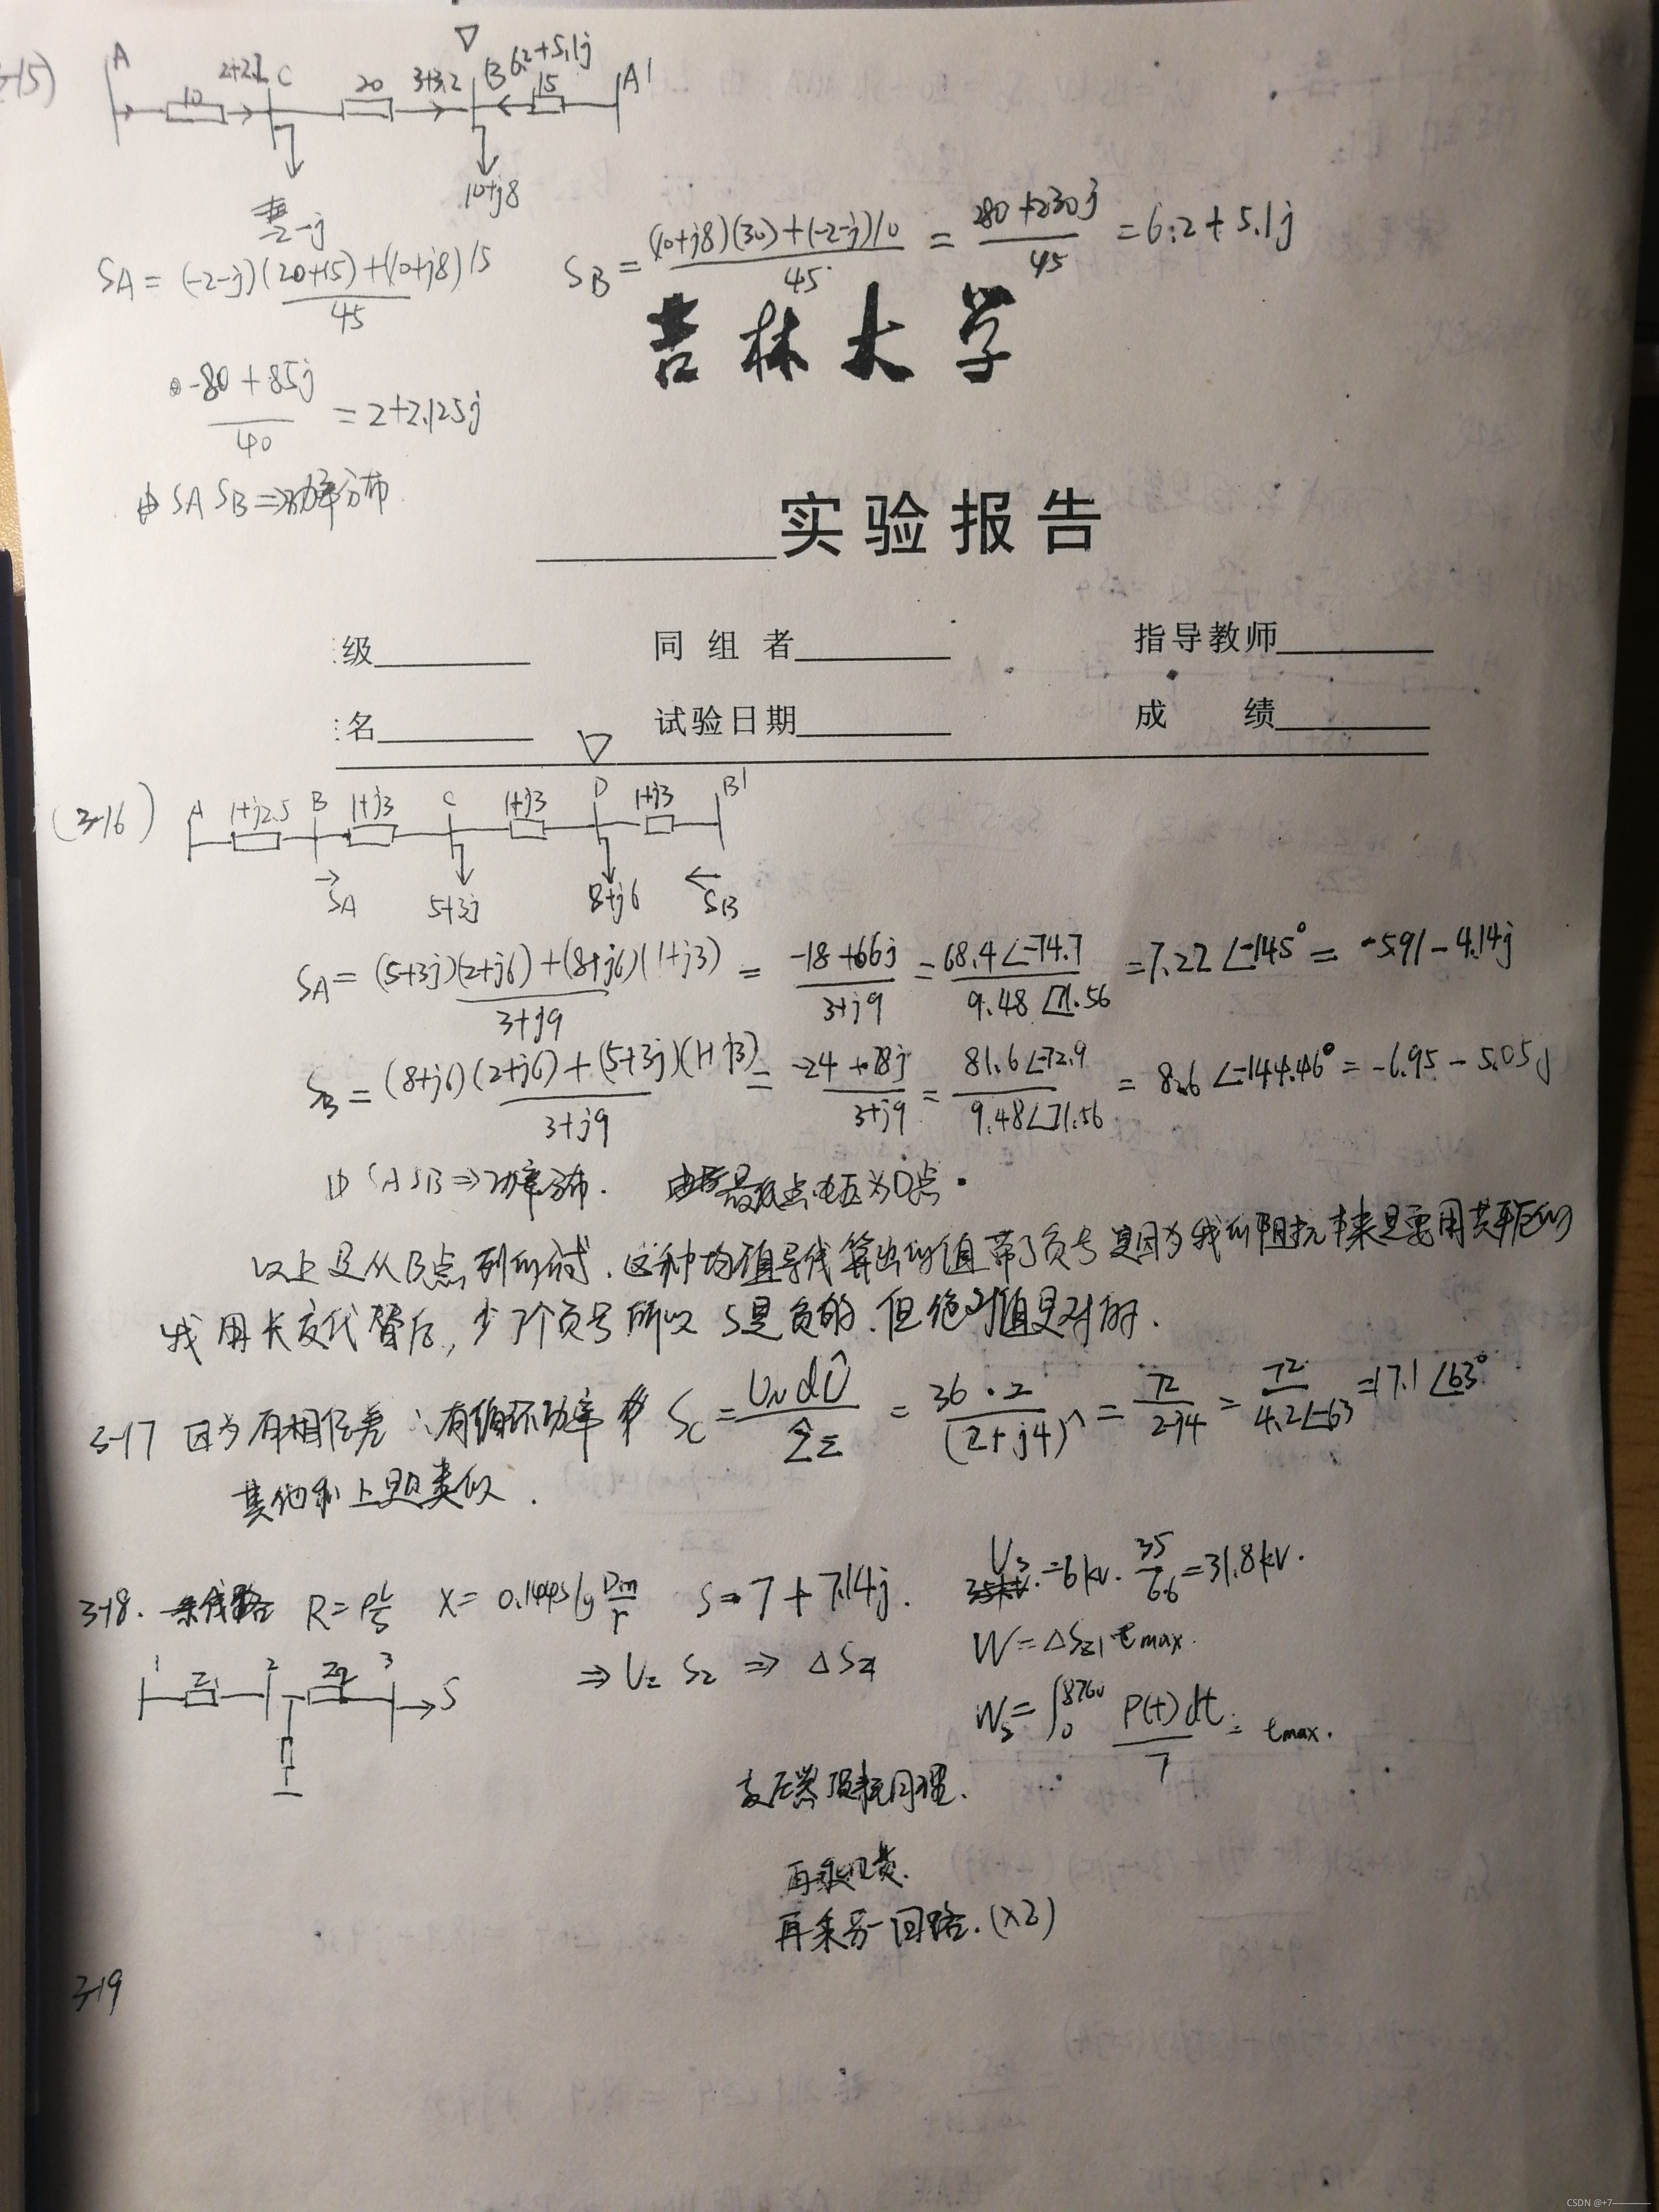 3-15)
A 10 2+2.1 C 20 3+3.2 ▽ B 6.2+5.1j 15 A'
-2-j 10+j8
SA = (-2-j)(20+15)+(10+j8)15 / 45
SB = (10+j8)(30)+(-2-j)10 / 45 = 280+230j / 45 = 6.2+5.1j
吉林大学
-80+85j / 40 = 2+2.125j
由SA SB⇒功率分布
实验报告
级 同组者 指导教师
名 试验日期 成绩
(3-16) A 1+j2.5 B 1+j3 C 1+j3 ▽ D 1+j3 B'
→ SA 5+3j 8+j6 ← SB
SA = (5+3j)(2+j6)+(8+j6)(1+j3) / 3+j9 = -18+66j / 3+j9 = 68.4∠-74.7 / 9.48∠71.56 = 7.22∠-145° = -5.91-4.14j
SB = (8+j6)(2+j6)+(5+3j)(1+j3) / 3+j9 = -24+78j / 3+j9 = 81.6∠-72.9 / 9.48∠71.56 = 8.6∠-144.46° = -6.95-5.05j
由SA SB⇒功率分布. 最低点电压为D点.
以上是从B点列的式. 这种均值导线算出的值带了负号是因为我们阻抗本来是要用共轭的
我用长度代替后, 少了个负号所以 S是负的. 但绝对值是对的.
3-17 因为有相位差 ∴有循环功率 Sc = UN dÛ / ẐΣ = 36·2 / (2+j4)^ = 72 / 2-j4 = 72 / 4.2∠-63 = 17.1∠63°
其他和上题类似.
3-18. R=ρL/S X=0.1445lg Dm/r S=7+7.14j. U3=6kv·35/6.6=31.8kv.
1 Z1 2 Z2 3 →S
⇒U2 S2 ⇒ΔSZ1
W=ΔSZ1 tmax.
W3=∫0^8760 P(t)dt / 7 = tmax.
变压器损耗同理.
再乘电费.
再乘另一回路.(×2)
3-19
CSDN @+7————